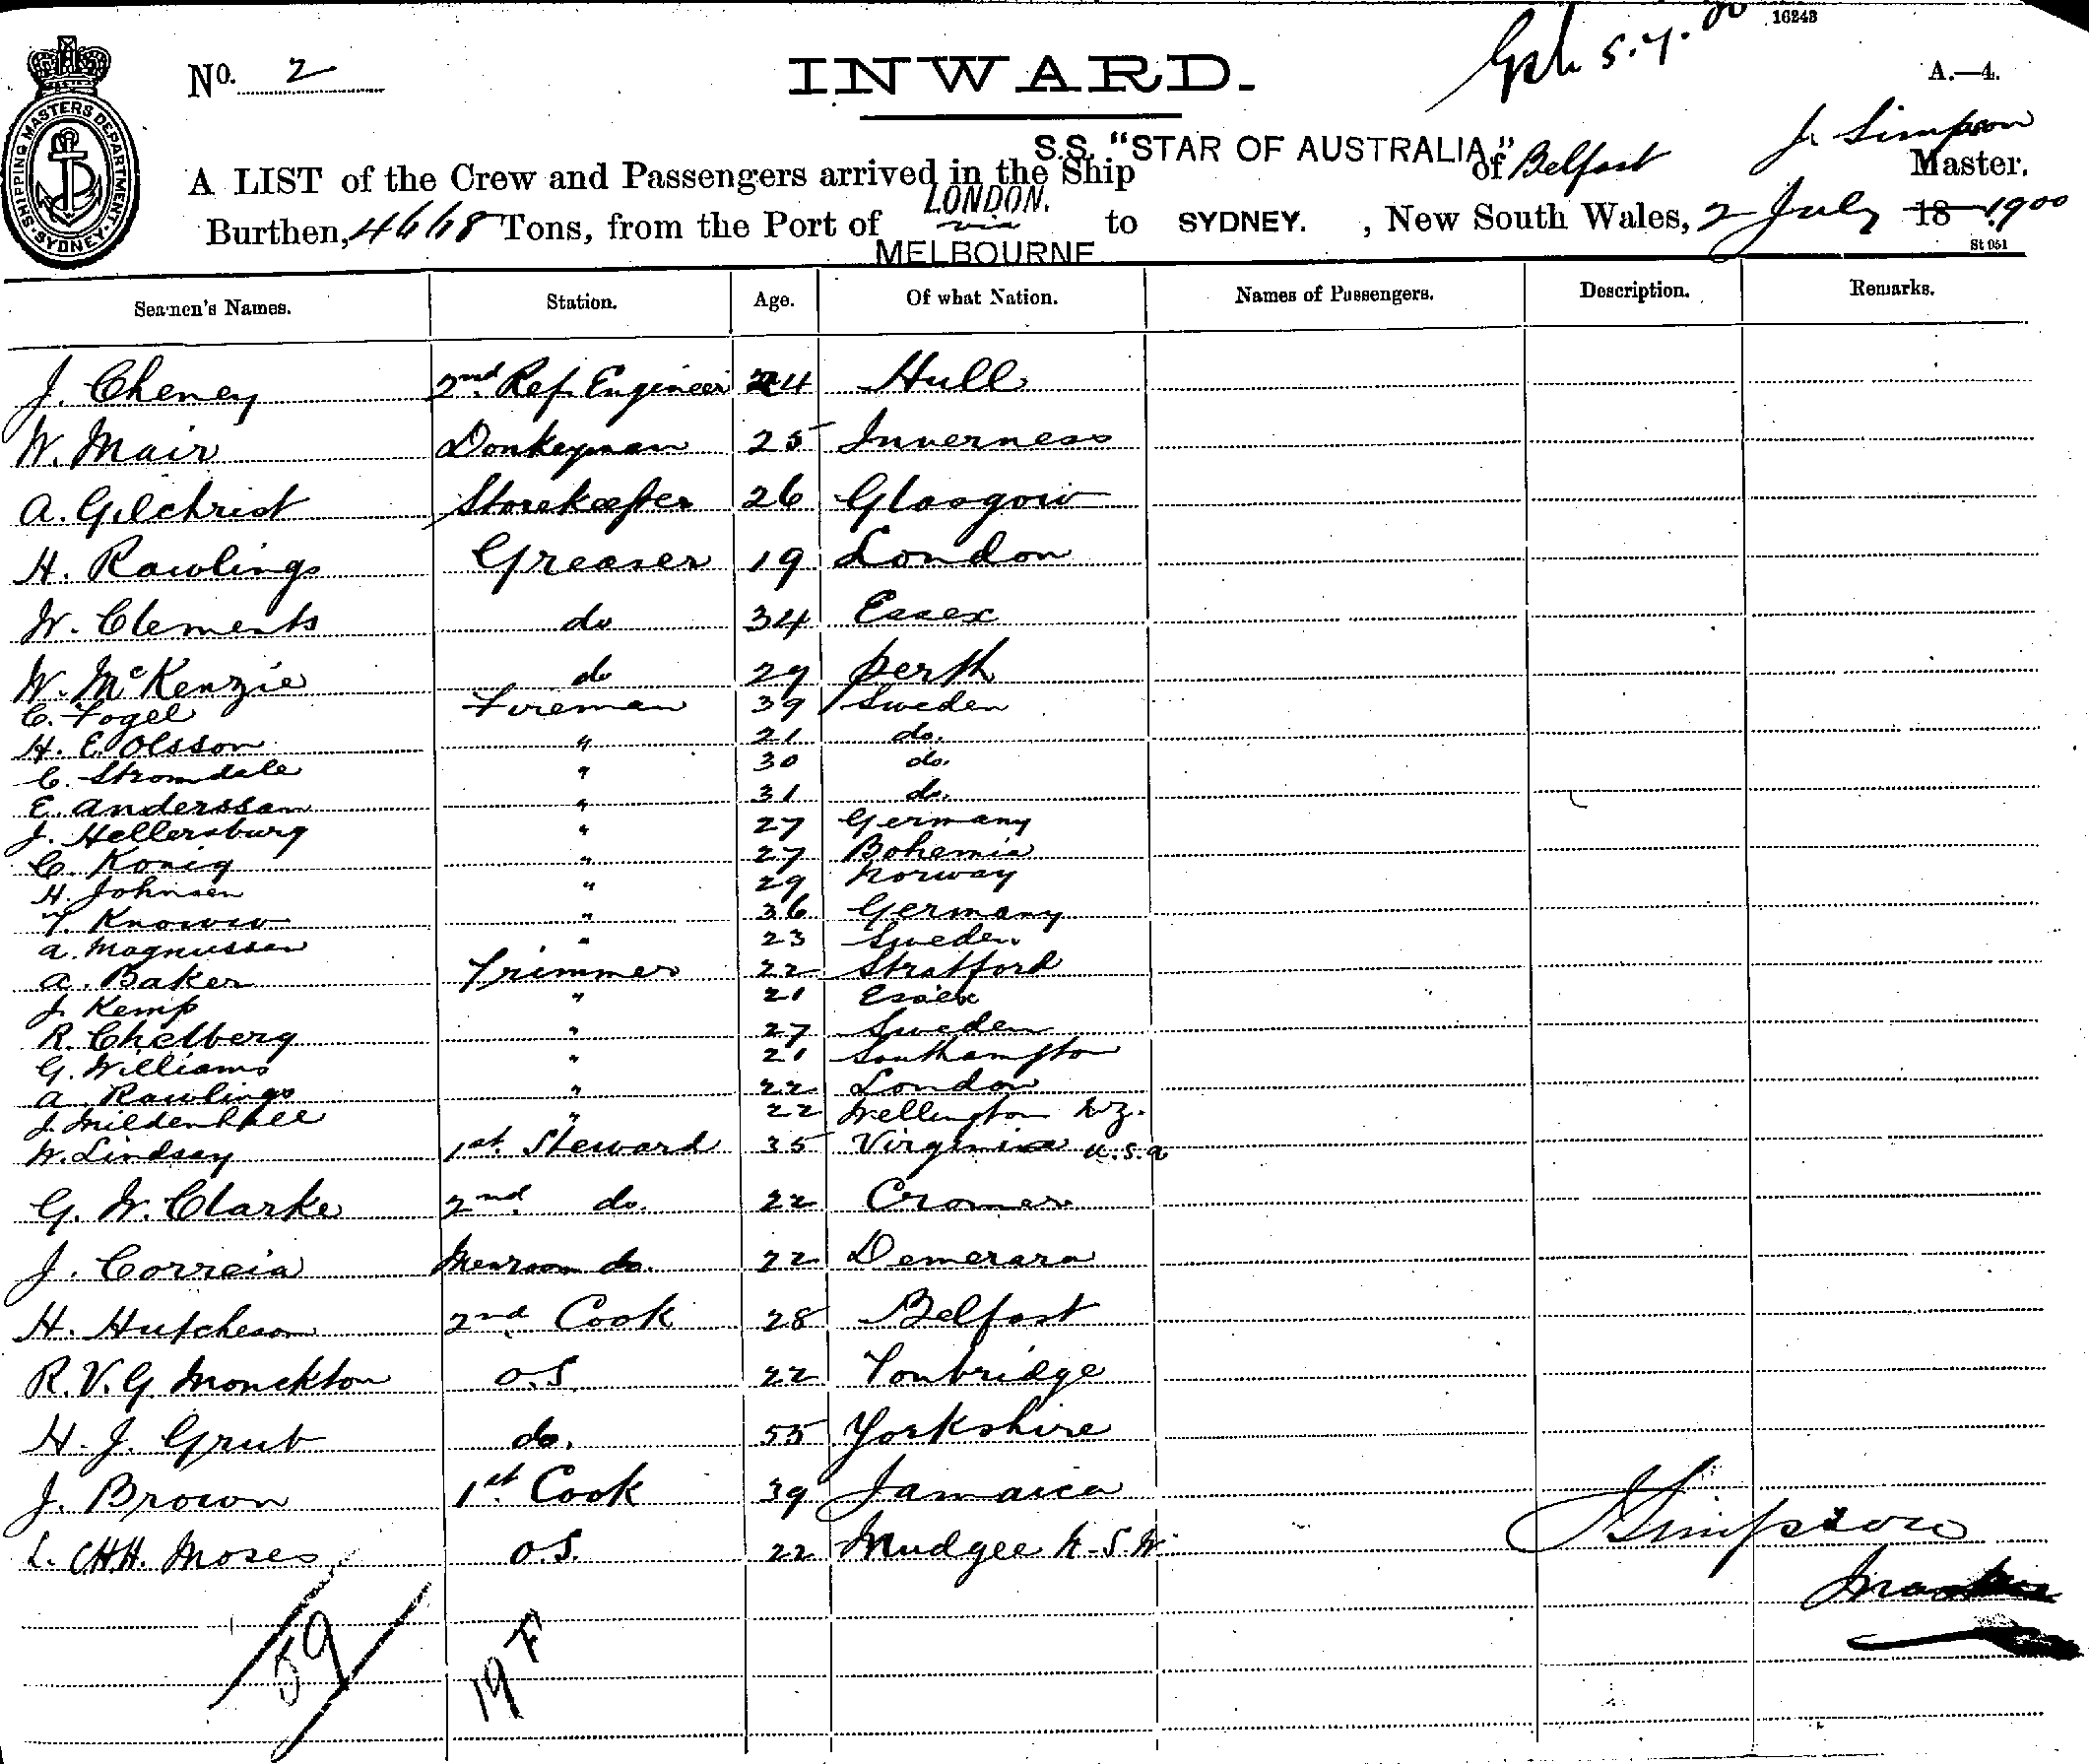 16243
Nº. 2
INWARD.
5.7.00
A.—4.
SHIPPING MASTERS DEPARTMENT · SYDNEY ·
S.S. "STAR OF AUSTRALIA"
J. Simpson
A LIST of the Crew and Passengers arrived in the Ship of Belfast Master,
LONDON.
Burthen, 4668 Tons, from the Port of via to SYDNEY. , New South Wales, 2 July 18 1900
MELBOURNE
St 051
Seamen's Names. Station. Age. Of what Nation. Names of Passengers. Description. Remarks.
J. Cheney 2nd Ref. Engineer 24 Hull
W. Mair Donkeyman 25 Inverness
A. Gilchrist Storekeeper 26 Glasgow
H. Rawlings Greaser 19 London
W. Clements do 34 Essex
W. McKenzie do 29 Perth
C. Fogel Fireman 39 Sweden
H. E. Olsson " 21 do.
C. Stromdale " 30 do.
E. Anderssan " 31 do.
J. Hellersburg " 27 Germany
C. Konig " 27 Bohemia
H. Johnsen " 29 Norway
" 36 Germany
A. Magnussen " 23 Sweden
A. Baker Trimmer 22 Stratford
J. Kemp " 21 Essex
R. Chelberg " 27 Sweden
G. Williams " 21 Southampton
A. Rawlings " 22 London
J. Mildenhall " 22 Wellington N.Z.
W. Lindsay 1st. Steward 35 Virginia U.S.A
G. W. Clarke 2nd do. 22 Cromer
J. Correia Messroom do. 22 Demerara
H. Hutcheson 2nd Cook 28 Belfast
R. V. G Monckton O.S. 22 Tonbridge
H. J. Grut do. 55 Yorkshire
J. Brown 1st Cook 39 Jamaica
L. C.H.H. Moses O.S. 22 Mudgee N.S.W.
J Simpson
Master
59
19 F